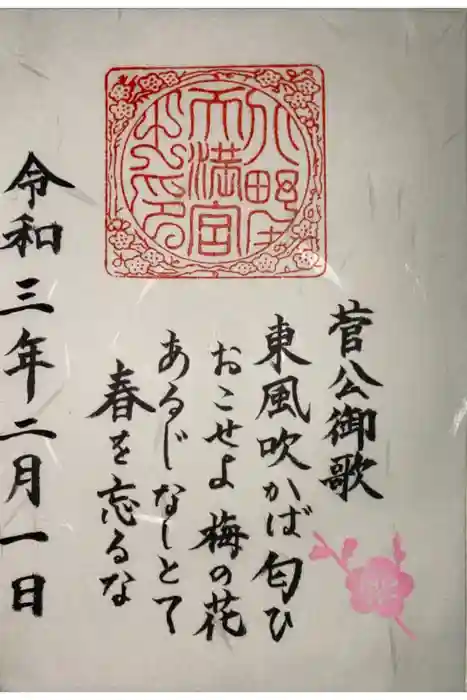 天満宮
菅公御歌
東風吹かば匂ひ
おこせよ梅の花
あるじなしとて
春を忘るな
令和三年二月一日